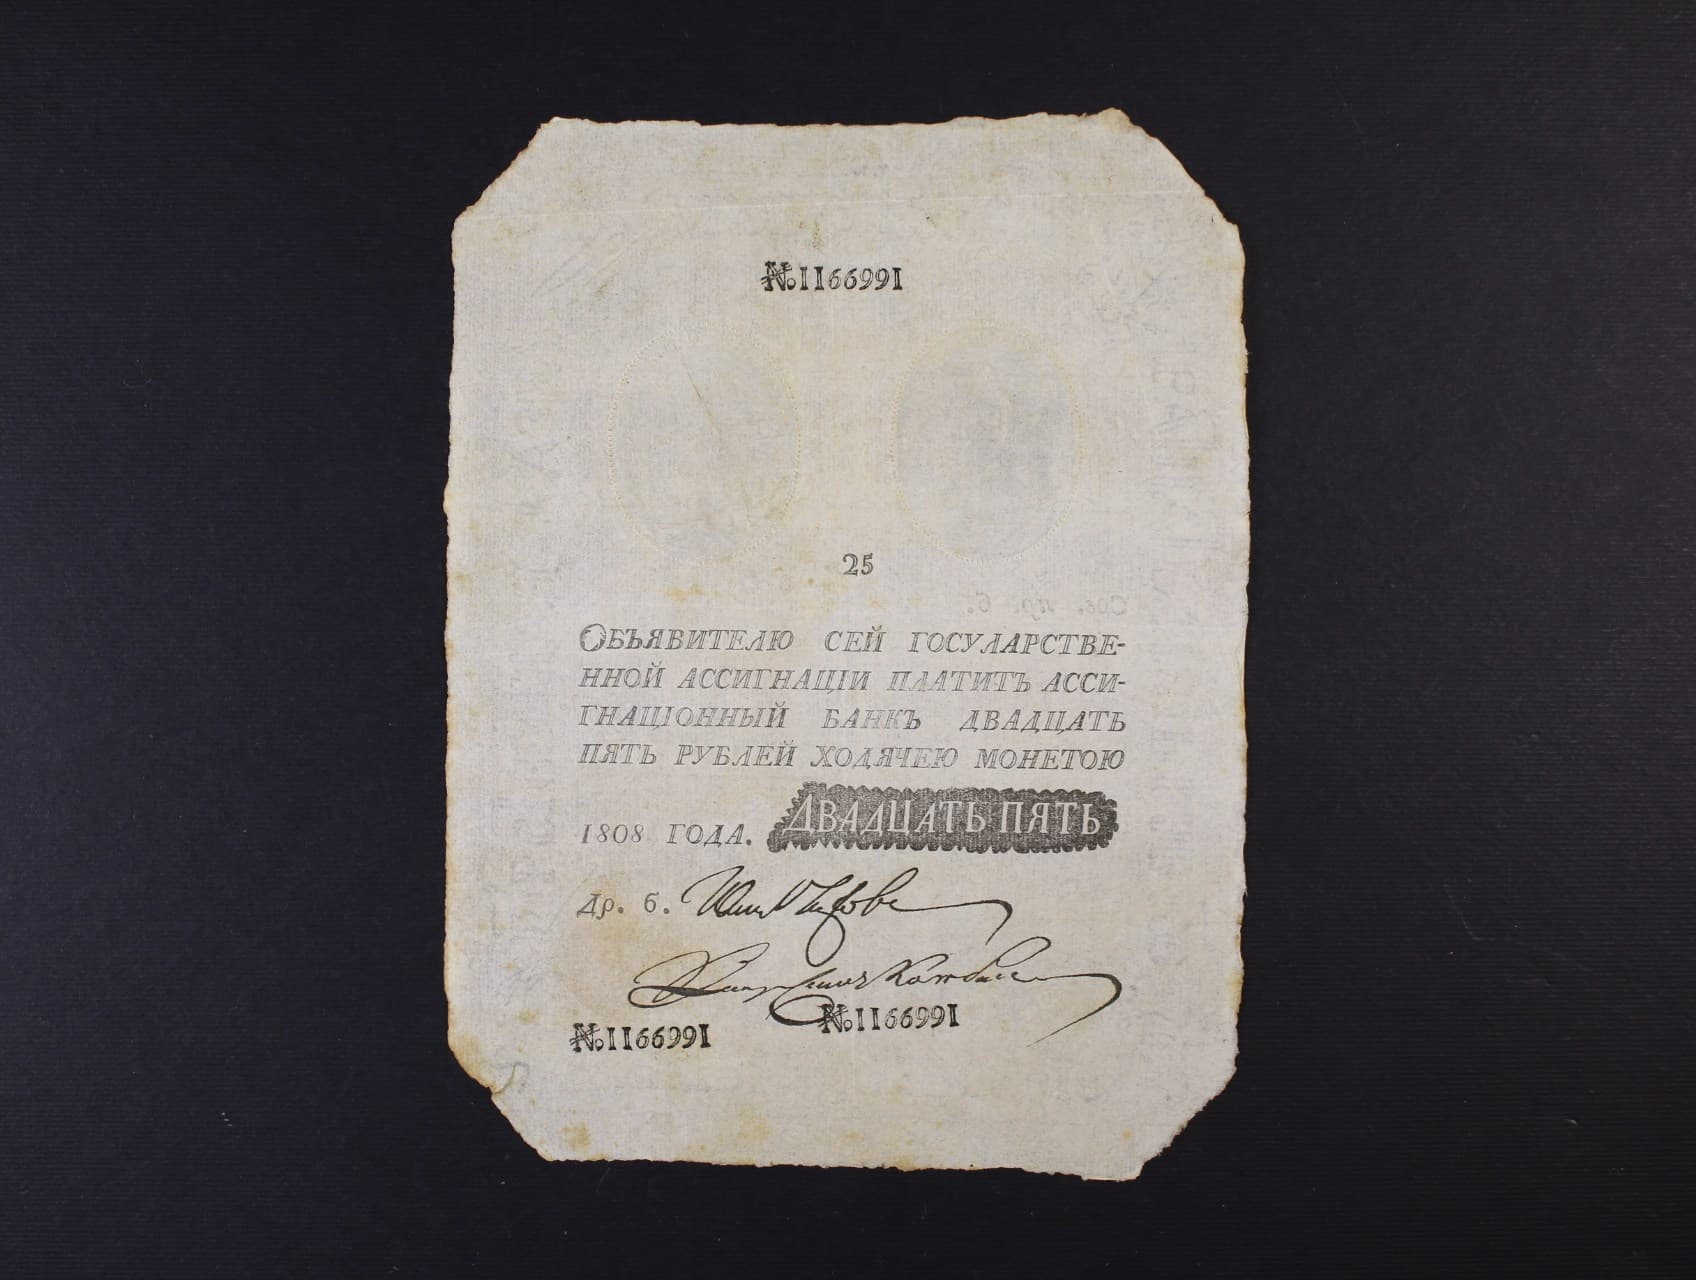 № 1166991
25
ОБЪЯВИТЕЛЮ СЕЙ ГОСУЛАРСТВЕ-
ННОЙ АССИГНАЦІИ ПЛАТИТЪ АССИ-
ГНАЦІОННЫЙ БАНКЪ ДВАДЦАТЬ
ПЯТЬ РУБЛЕЙ ХОДЯЧЕЮ МОНЕТОЮ
1808 ГОДА. ДВАДЦАТЬ ПЯТЬ
Др. б.
№ 1166991
№ 1166991